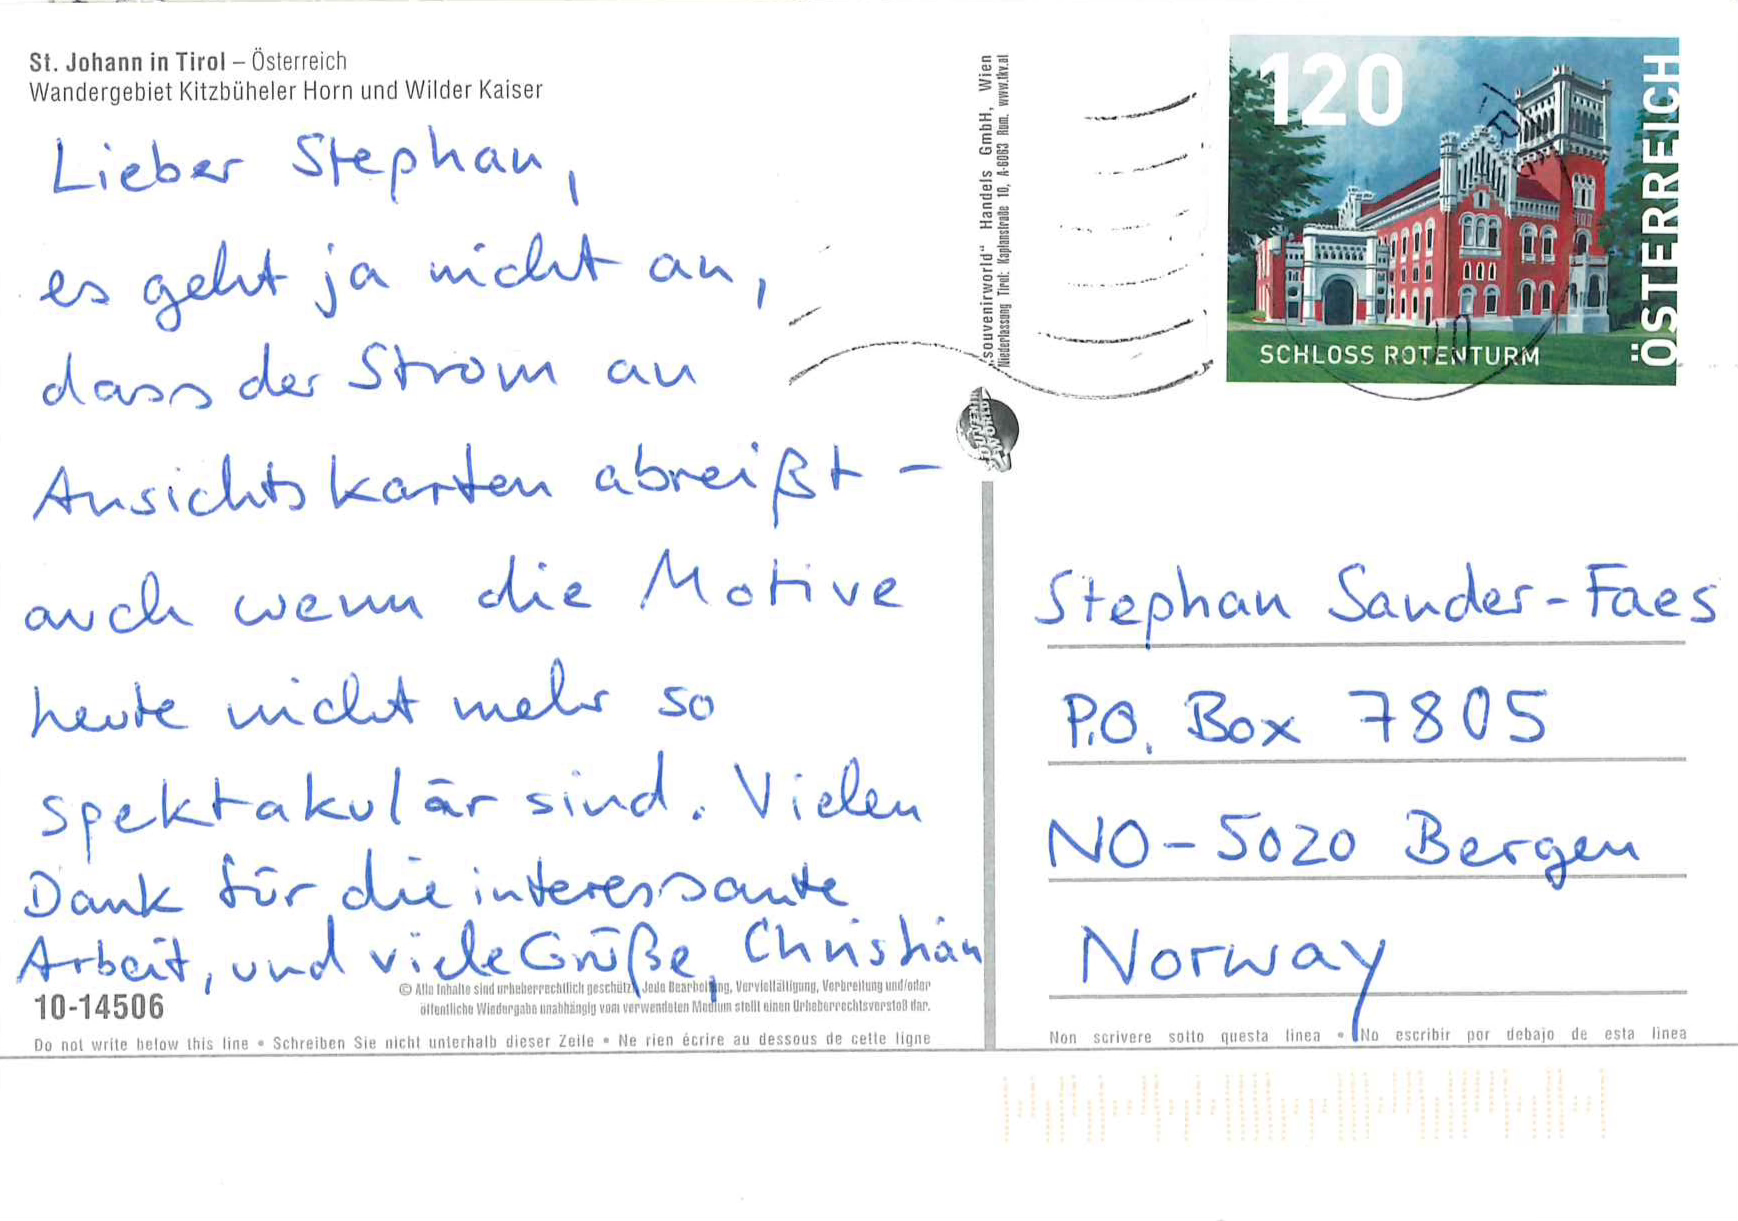 St. Johann in Tirol – Österreich
Wandergebiet Kitzbüheler Horn und Wilder Kaiser
Lieber Stephan,
es geht ja nicht an,
dass der Strom an
Ansichtskarten abreißt –
auch wenn die Motive
heute nicht mehr so
spektakulär sind. Vielen
Dank für die interessante
Arbeit, und viele Grüße, Christian
10-14506
© Alle Inhalte sind urheberrechtlich geschützt. Jede Bearbeitung, Vervielfältigung, Verbreitung und/oder
öffentliche Wiedergabe unabhängig vom verwendeten Medium stellt einen Urheberrechtsverstoß dar.
Do not write below this line • Schreiben Sie nicht unterhalb dieser Zeile • Ne rien écrire au dessous de cette ligne
„souvenirworld“ Handels GmbH, Wien
Niederlassung Tirol: Kaplanstraße 10, A-6063 Rum, www.tkv.at
SOUVENIR
WORLD
120
ÖSTERREICH
SCHLOSS ROTENTURM
Stephan Sander-Faes
P.O. Box 7805
NO-5020 Bergen
Norway
Non scrivere sotto questa linea • No escribir por debajo de esta linea